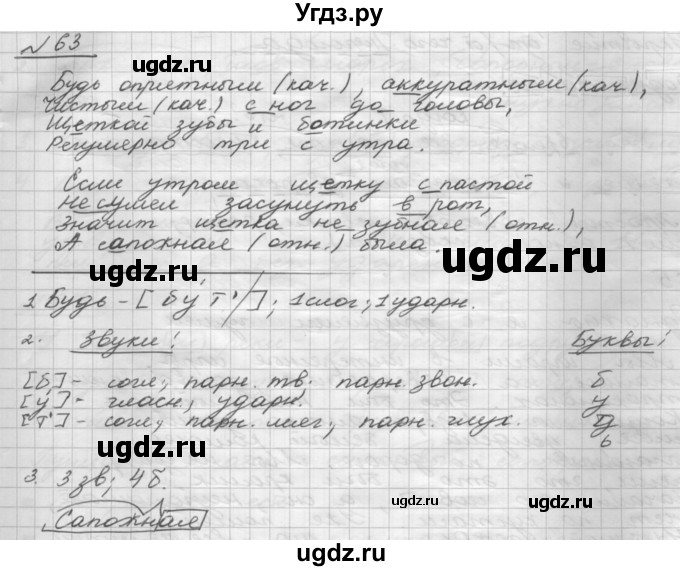 Угдз.ру
№ 63
Будь опрятным (кач.), аккуратным (кач.),
Чистым (кач.) с ног до головы,
Щеткой зубы и ботинки
Регулярно три с утра.
Если утром щетку с пастой
Не сумел засунуть в рот,
Значит щетка не зубная (отн.),
А сапожная (отн.) была.
ugdz.ru ugdz.ru
1. Будь - [бу́т'] ; 1 слог; 1 ударн.
2. Звуки: Буквы:
[б] - согл., парн. тв. парн. звон. б
[у́] - гласн., ударн. у
[т'] - согл., парн. мяг., парн. глух. д
ь
ugdz.ru
3. 3 зв; 4 б.
ugdz.ru ugdz.ru
Сапожная
ugdz.ru